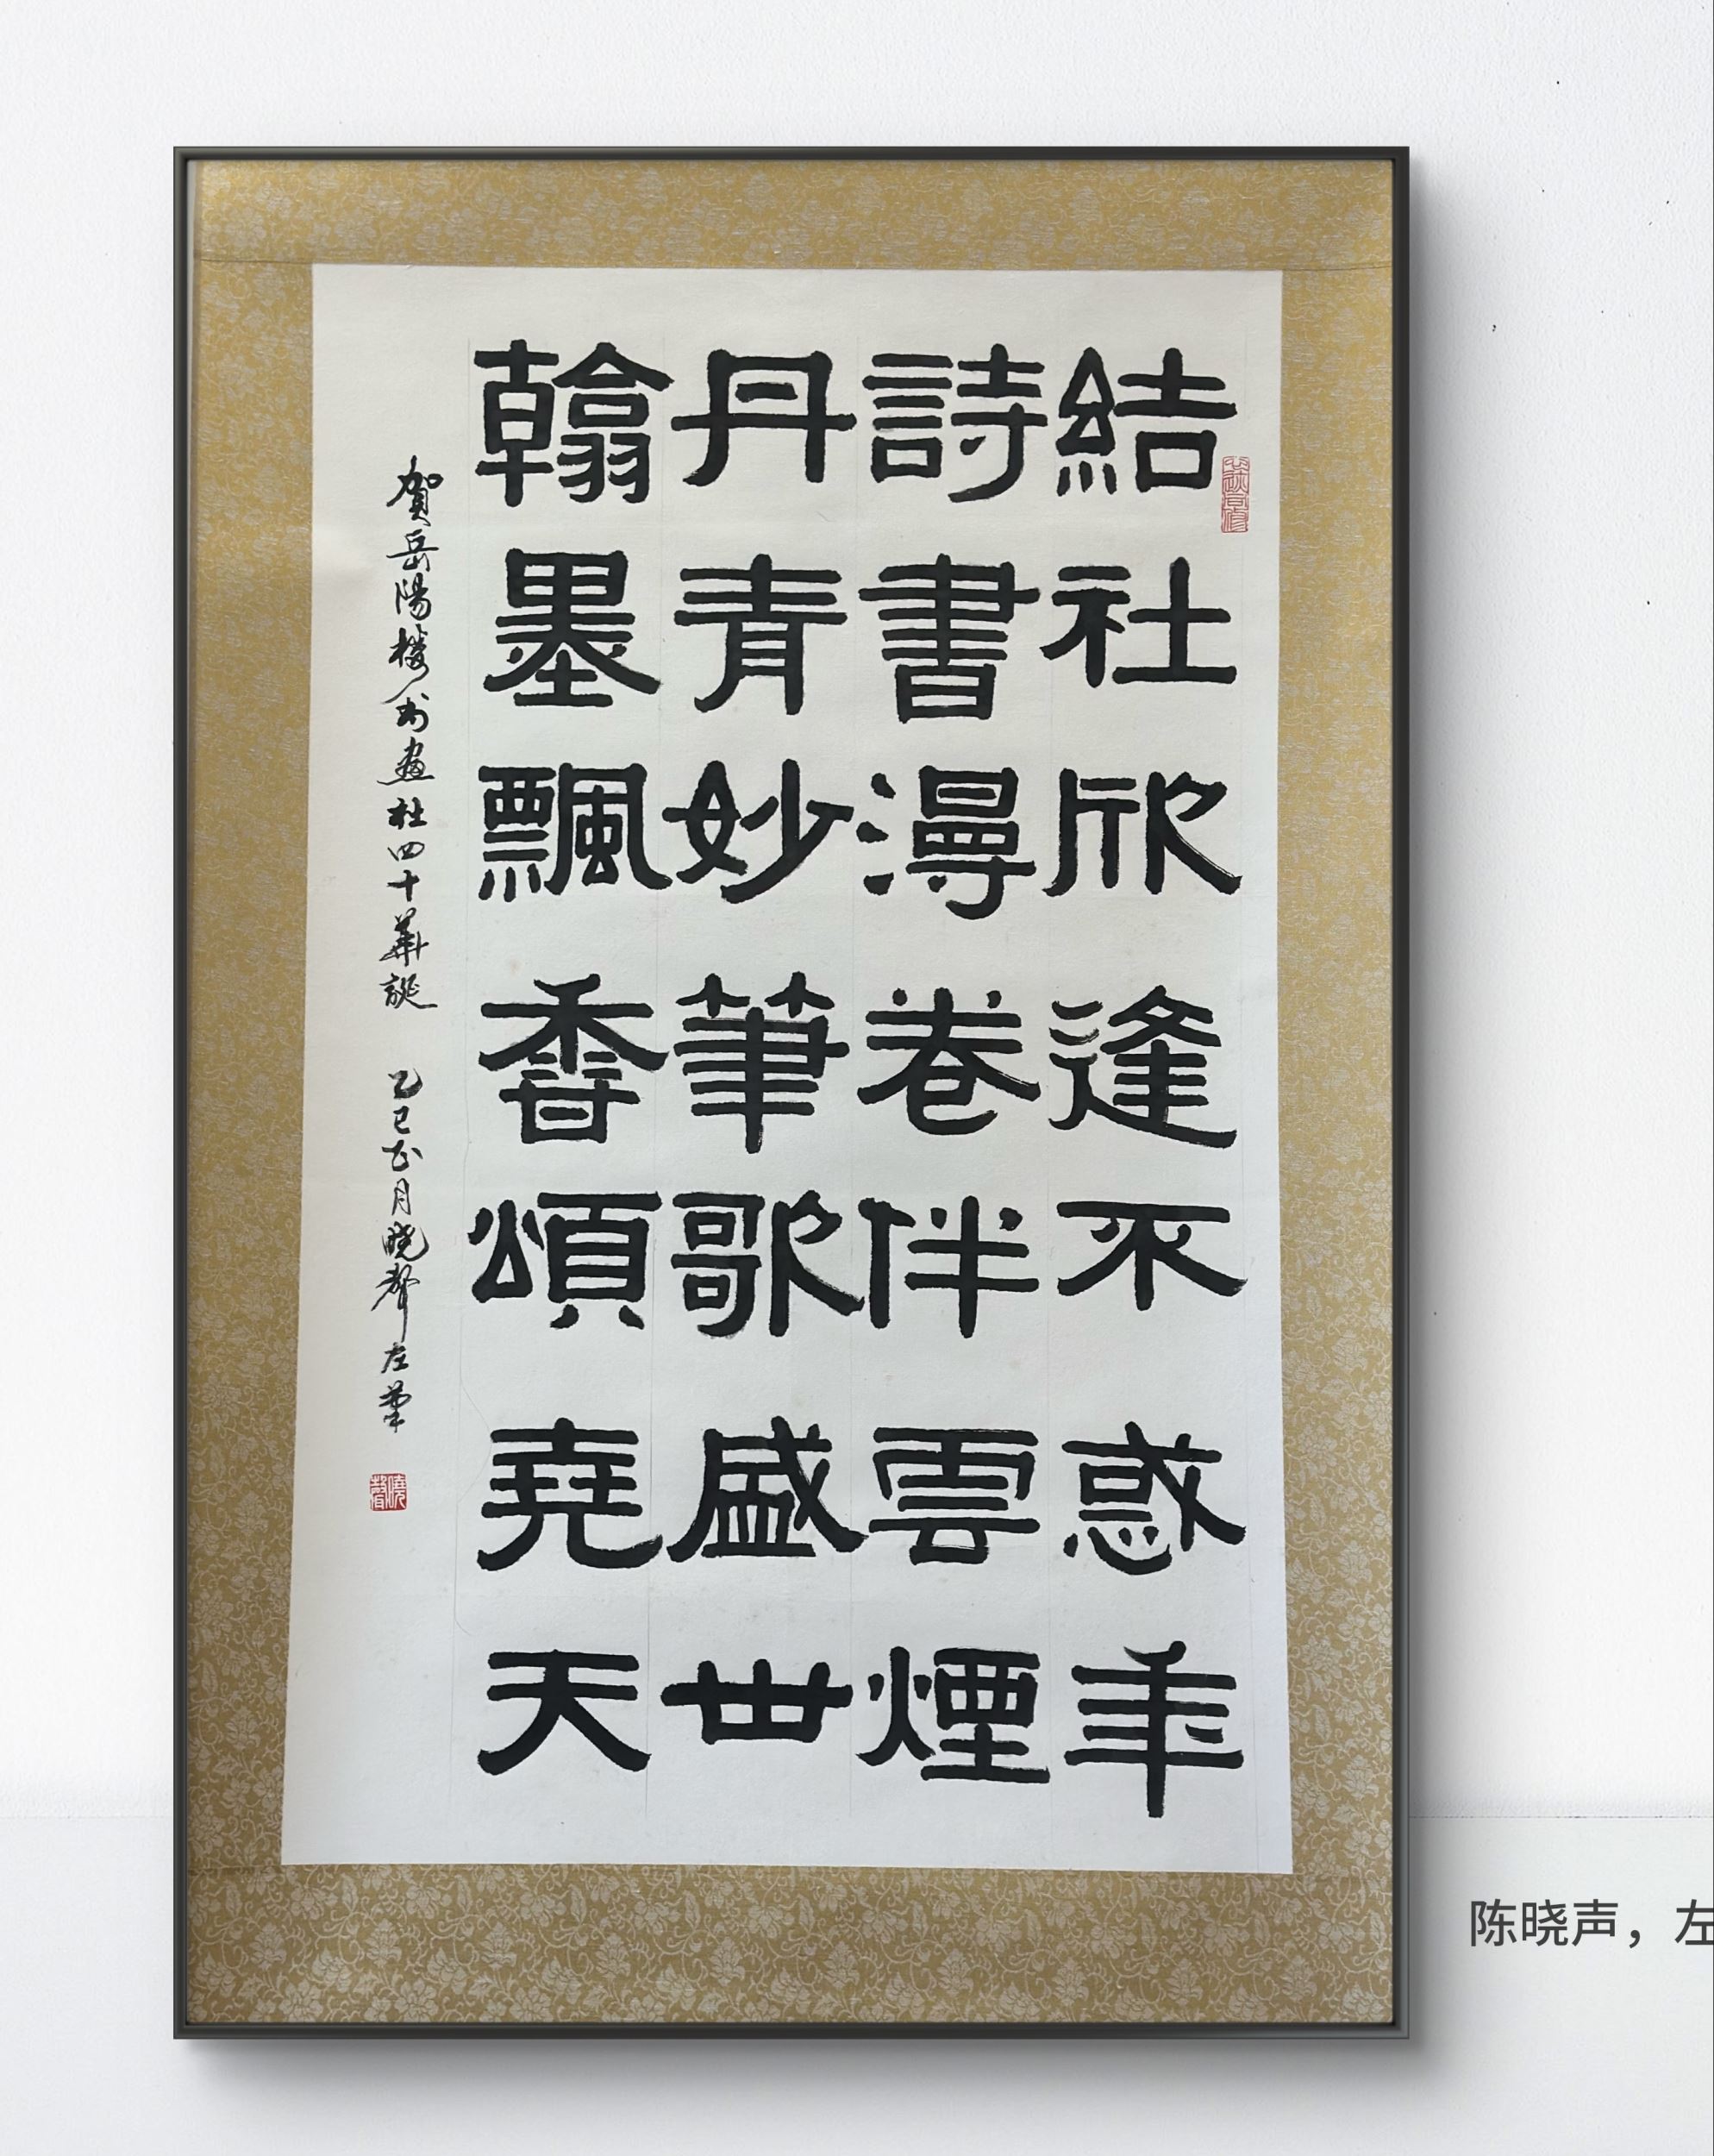 結社欣逢不惑年
詩書漫卷伴雲煙
丹青妙筆歌盛世
翰墨飄香頌堯天
賀岳陽樓書畫社四十華誕 乙巳正月曉聲左筆
曉聲
陈晓声，左